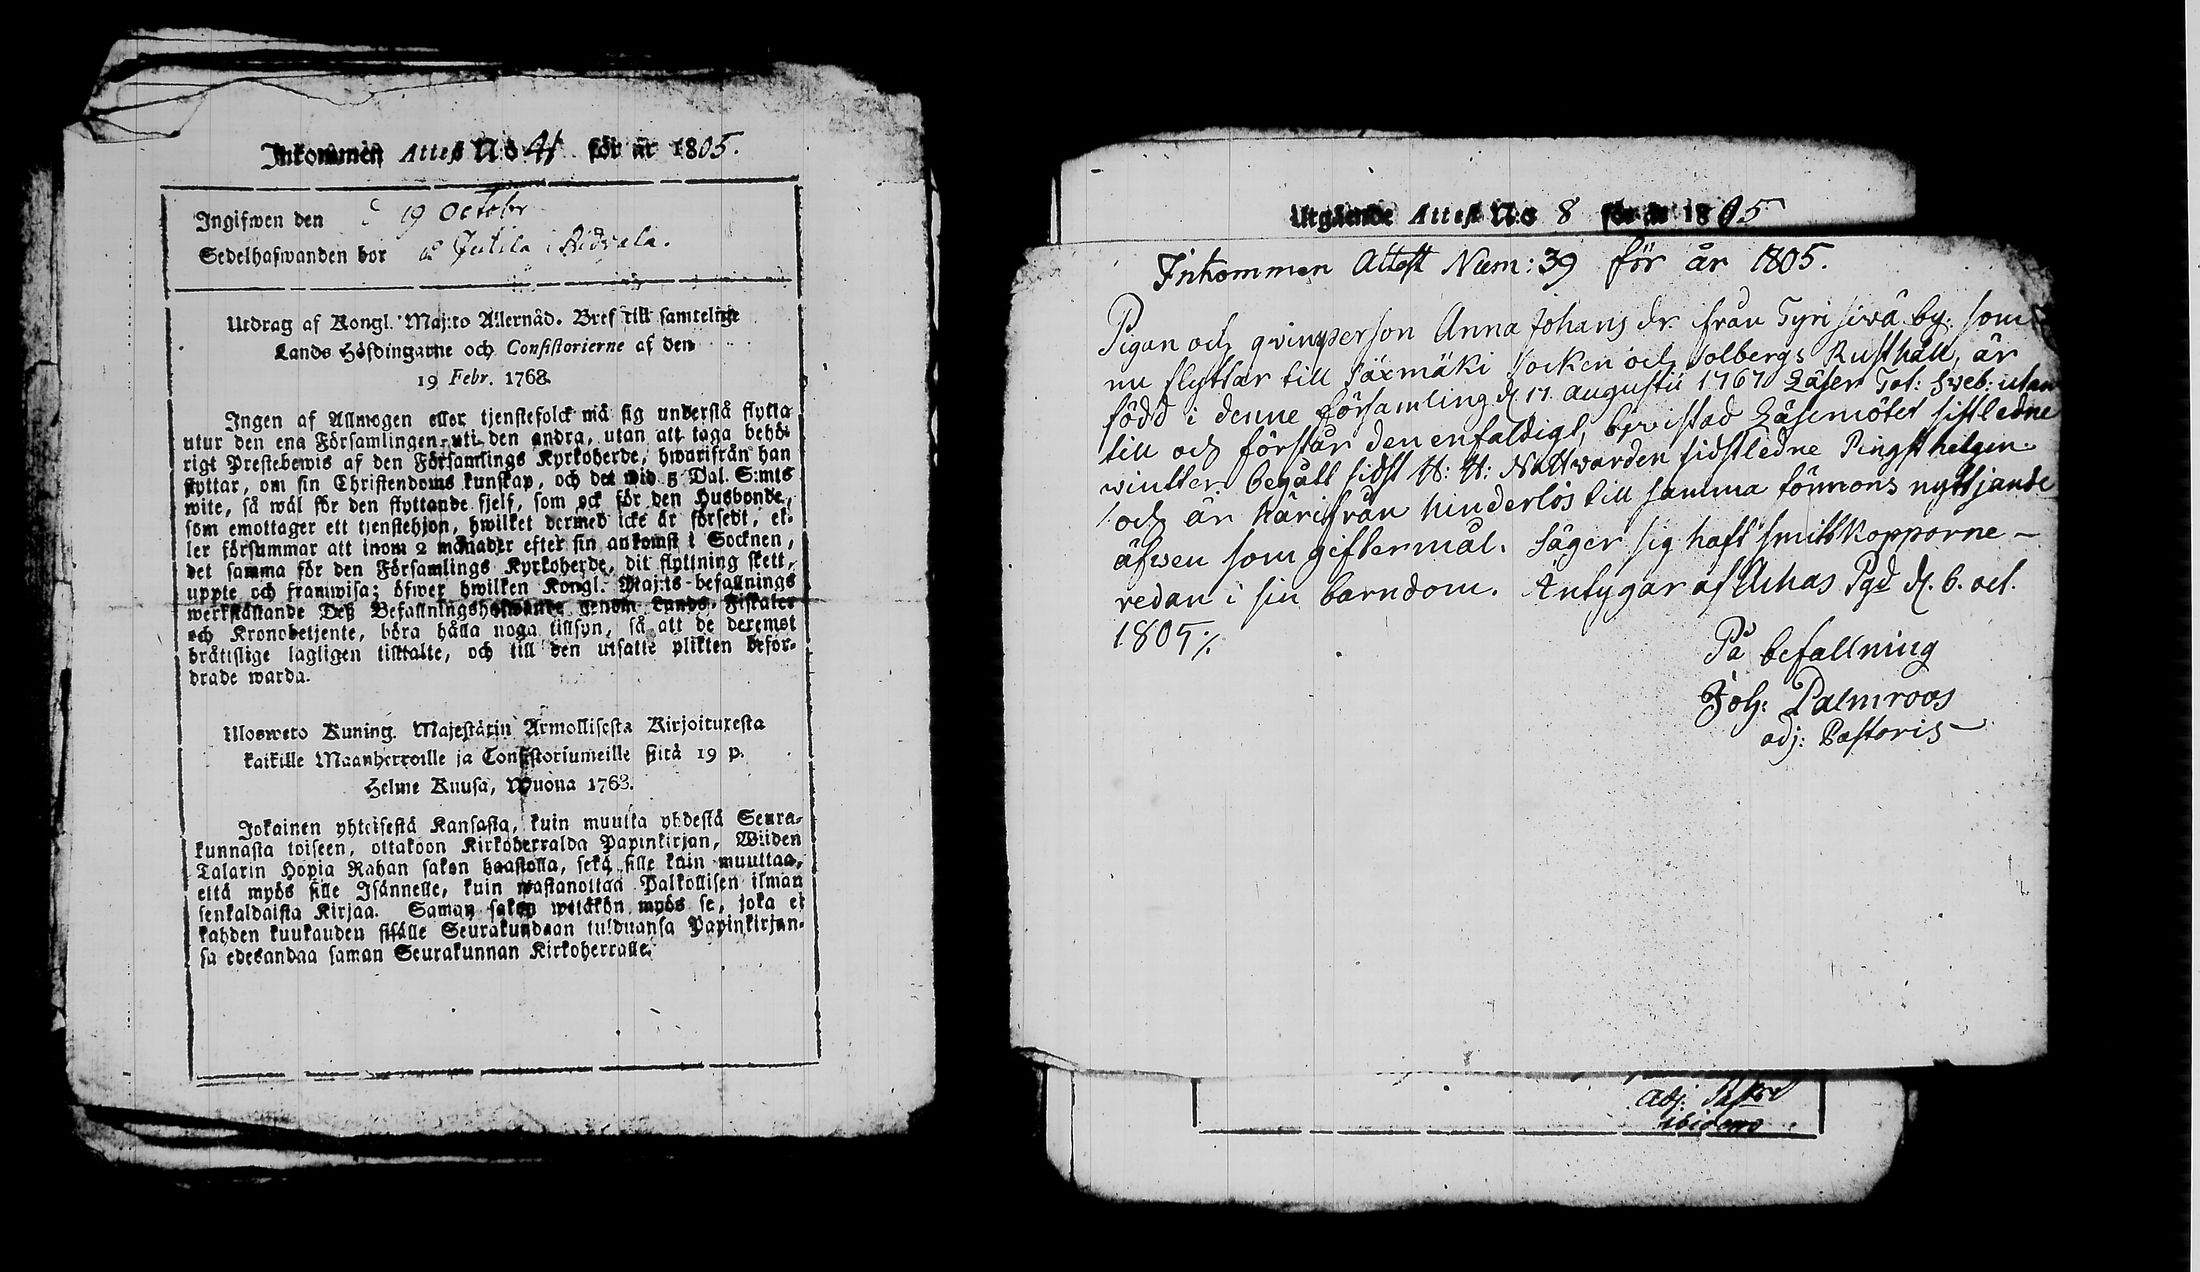 Inkommen Attest No 41 för år 1805.
Ingifwen den 19 Octobr
Sedelhafwanden bor Jutila i Ridvala.
Utdrag af Kongl. Maj:ts Allernåd. Bref till samtelige
Lands Höfdingarne och Consistorierne af den
19 Febr. 1768.
Ingen af Allmogen eller tjenstefolck må sig understå flytta
utur den ena Församlingen uti den andra, utan att taga behö-
rigt Prestebewis af den Församlings Kyrkoherde, hwarifrån han
flyttar, om sin Christendoms kunskap, och det wid 5 Dal. S:mts
wite, så wäl för den flyttande sjelf, som ock för den Husbonde,
som emottager ett tjenstehjon, hwilket dermed icke är försedt, el-
ler försummar att inom 2 månader efter sin ankomst i Socknen,
det samma för den Församlings Kyrkoherde, dit flyttning skett,
uppte och framwisa; öfwer hwilken Kongl. Maj:ts befallnings
werkställande Deß Befallningshafwande genom Lands-Fiskaler
och Kronobetjente, böra hålla noga tillsyn, så att de deremot
brättslige lagligen tilltalte, och till den utsatte plikten beför-
drade warda.
Ulosweto Kuning. Majestätin Armollisesta Kirjoituxesta
kaikille Maanherroille ja Consistoriumeille siitä 19 p.
Helme Kuusa, Wuona 1768.
Jokainen yhteisestä Kansasta, kuin muutta yhdestä Seura-
kunnasta toiseen, ottakoon Kirkoherralda Papinkirjan, Wiiden
Talarin Hopia Rahan sakon haastolla, sekä sille kuin muuttaa,
että myös sille Isännelle, kuin wastanottaa Palkollisen ilman
senkaldaista Kirjaa. Saman sakon wetäkön myös se, joka ei
kahden kuukauden sisälle Seurakundaan tulduansa Papinkirjan-
sa edesandaa saman Seurakunnan Kirkoherralle.
Utgående Attest No 8 för år 1805
Inkommen Attest Num: 39 för år 1805.
Pigan och qvinsperson Anna Johans dr. från Tyrisevä by. som
nu flyttar till Säxmäki Socken och Solbergs Rusthåll, är
född i denne församling d. 17 Augustii 1767 Läser Tot: Sveb: utan
till och förstår den enfaldigt, bevistad Läsemötet sistledne
winter. Begått sidst H: H: Nattvarden sidstledne Pingsthelgen.
och är härifrån hinderlös till samma förmons nyttjande
äfwen som giftermål. Säger sig haft smittkopporne –
redan i sin barndom. Antygar af Achas Pgd d. 6. oct.
1805 ./.
På befallning
Joh: Palmroos
adj: Pastoris
Adj: Past
ibidem